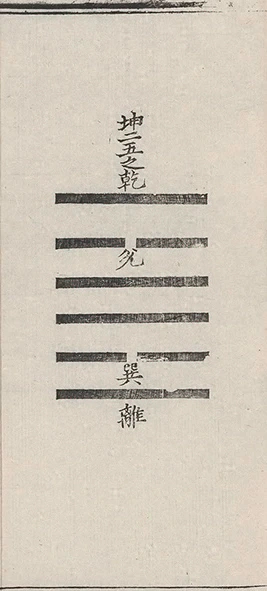 坤二五之乾
兌
巽
離